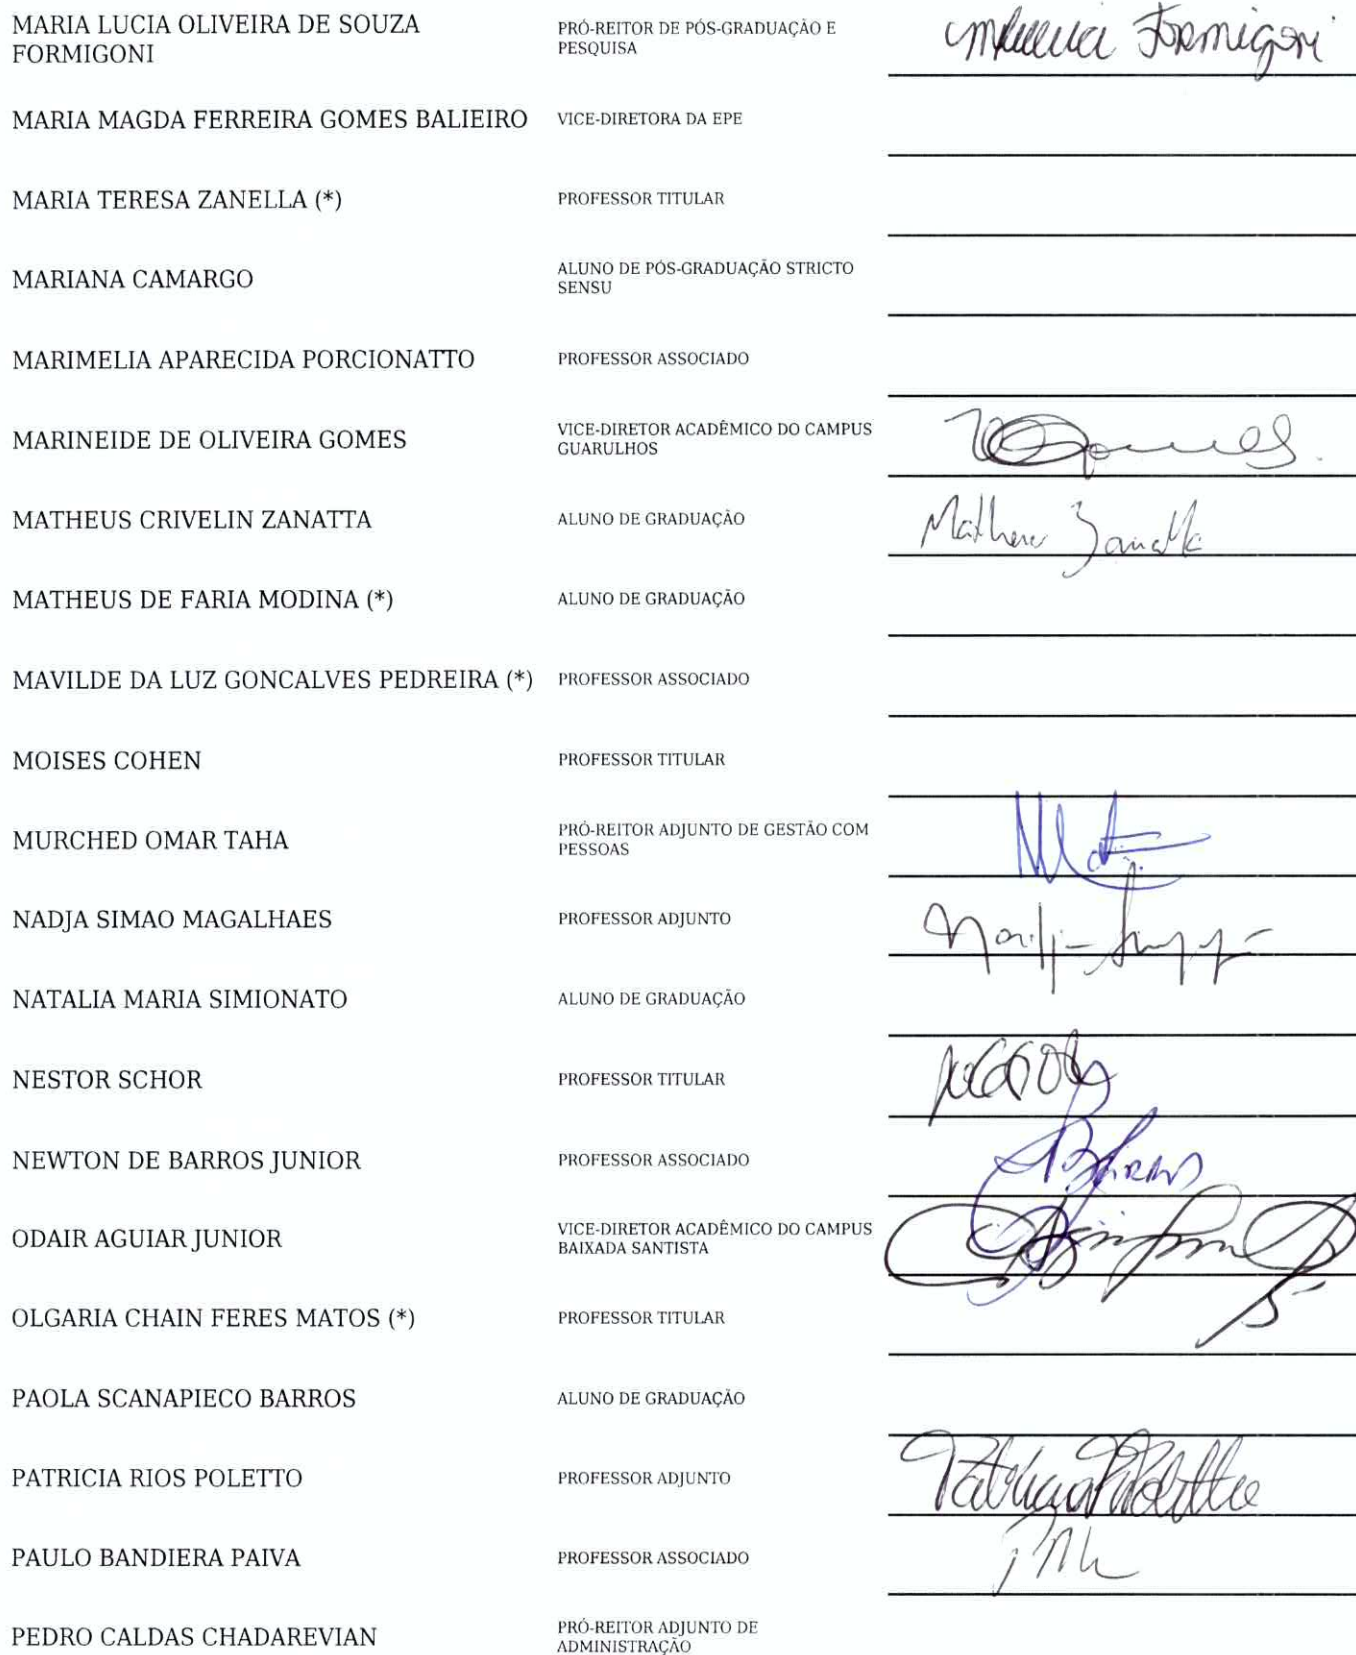 MARIA LUCIA OLIVEIRA DE SOUZA
FORMIGONI
PRÓ-REITOR DE PÓS-GRADUAÇÃO E
PESQUISA
Formigoni
MARIA MAGDA FERREIRA GOMES BALIEIRO
VICE-DIRETORA DA EPE
MARIA TERESA ZANELLA (*)
PROFESSOR TITULAR
MARIANA CAMARGO
ALUNO DE PÓS-GRADUAÇÃO STRICTO
SENSU
MARIMELIA APARECIDA PORCIONATTO
PROFESSOR ASSOCIADO
MARINEIDE DE OLIVEIRA GOMES
VICE-DIRETOR ACADÊMICO DO CAMPUS
GUARULHOS
MATHEUS CRIVELIN ZANATTA
ALUNO DE GRADUAÇÃO
Matheus Zanatta
MATHEUS DE FARIA MODINA (*)
ALUNO DE GRADUAÇÃO
MAVILDE DA LUZ GONCALVES PEDREIRA (*)
PROFESSOR ASSOCIADO
MOISES COHEN
PROFESSOR TITULAR
MURCHED OMAR TAHA
PRÓ-REITOR ADJUNTO DE GESTÃO COM
PESSOAS
NADJA SIMAO MAGALHAES
PROFESSOR ADJUNTO
NATALIA MARIA SIMIONATO
ALUNO DE GRADUAÇÃO
NESTOR SCHOR
PROFESSOR TITULAR
NEWTON DE BARROS JUNIOR
PROFESSOR ASSOCIADO
ODAIR AGUIAR JUNIOR
VICE-DIRETOR ACADÊMICO DO CAMPUS
BAIXADA SANTISTA
OLGARIA CHAIN FERES MATOS (*)
PROFESSOR TITULAR
PAOLA SCANAPIECO BARROS
ALUNO DE GRADUAÇÃO
PATRICIA RIOS POLETTO
PROFESSOR ADJUNTO
PAULO BANDIERA PAIVA
PROFESSOR ASSOCIADO
PEDRO CALDAS CHADAREVIAN
PRÓ-REITOR ADJUNTO DE
ADMINISTRAÇÃO